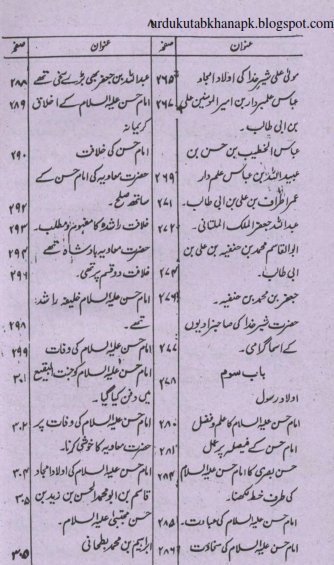 urdukutabkhanapk.blogspot.com
عنوان صفحہ
مولیٰ علی شیر خدا کی اولاد امجاد ۲۶۵
عباس علمبردار بن امیر المومنین علی ۲۶۷
بن ابی طالب۔
عباس الخطیب بن حسن بن
عبید اللہ بن عباس علم دار ۲۶۹
عمر اطراف بن علی بن ابی طالب۔ ۲۷۱
عبداللہ جعفر الملک الملتانی۔ ۲۷۲
ابوالقاسم محمد بن حنفیہ بن علی بن
ابی طالب۔ ۲۷۴
جعفر بن محمد بن حنفیہ۔ ۲۷۶
حضرت شیر خدا کی صاحبزادیوں
کے اسما گرامی۔ ۲۷۷
باب سوم ۲۷۸
اولاد رسول
امام حسن علیہ السلام کا علم و فضل ۲۸۰
امام حسن کے فیصلہ پر عمل ۲۸۱
حسن بصری کا امام حسن علیہ السلام ۲۸۴
کی طرف خط لکھنا۔
امام حسن علیہ السلام کی عبادت۔ ۲۸۵
امام حسن علیہ السلام کی سخاوت ۲۸۶
عنوان صفحہ
عبداللہ بن جعفر بھی بڑے سخی تھے ۲۸۸
امام حسن علیہ السلام کے اخلاق ۲۸۹
کریمانہ
امام حسن کی خلافت ۲۹۰
حضرت معاویہ کی امام حسن کے
ساتھ صلح۔ ۲۹۲
خلافت راشدہ کا مفہوم و مطلب۔ ۲۹۳
حضرت معاویہ بادشاہ تھے ۲۹۴
خلافت دو قسم پر تھی۔ ۲۹۶
امام حسن علیہ السلام خلیفہ راشد
تھے۔ ۲۹۸
امام حسن علیہ السلام کی وفات ۲۹۹
امام حسن علیہ السلام کو جنت البقیع ۳۰۱
میں دفن کیا گیا۔
امام حسن علیہ السلام کی وفات پر ۳۰۲
حضرت معاویہ کا خوشی کرنا۔
امام حسن علیہ السلام کی اولاد امجاد ۳۰۴
قاسم بن ابو محمد الحسن بن زید بن ۳۰۵
حسن مجتبیٰ علیہ السلام۔
ابراہیم بن محمد بطحانی ۳۰۵